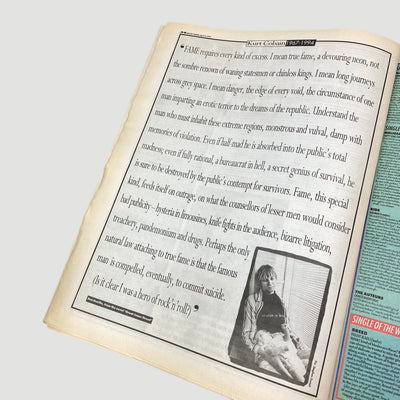 Kurt Cobain 1967-1994
“FAME requires every kind of excess. I mean true fame, a devouring neon, not
the sombre renown of waning statesmen or chinless kings. I mean long journeys
across grey space. I mean danger, the edge of every void, the circumstance of one
man imparting an erotic terror to the dreams of the republic. Understand the
man who must inhabit these extreme regions, monstrous and vulval, damp with
memories of violation. Even if half-mad he is absorbed into the public's total
madness; even if fully rational, a bureaucrat in hell, a secret genius of survival, he
is sure to be destroyed by the public's contempt for survivors. Fame, this special
kind, feeds itself on outrage, on what the counsellors of lesser men would consider
bad publicity – hysteria in limousines, knife fights in the audience, bizarre litigation,
treachery, pandemonium and drugs. Perhaps the only
natural law attaching to true fame is that the famous
man is compelled, eventually, to commit suicide.
(Is it clear I was a hero of rock'n'roll?)”
THE AUTEURS
SINGLE OF THE W